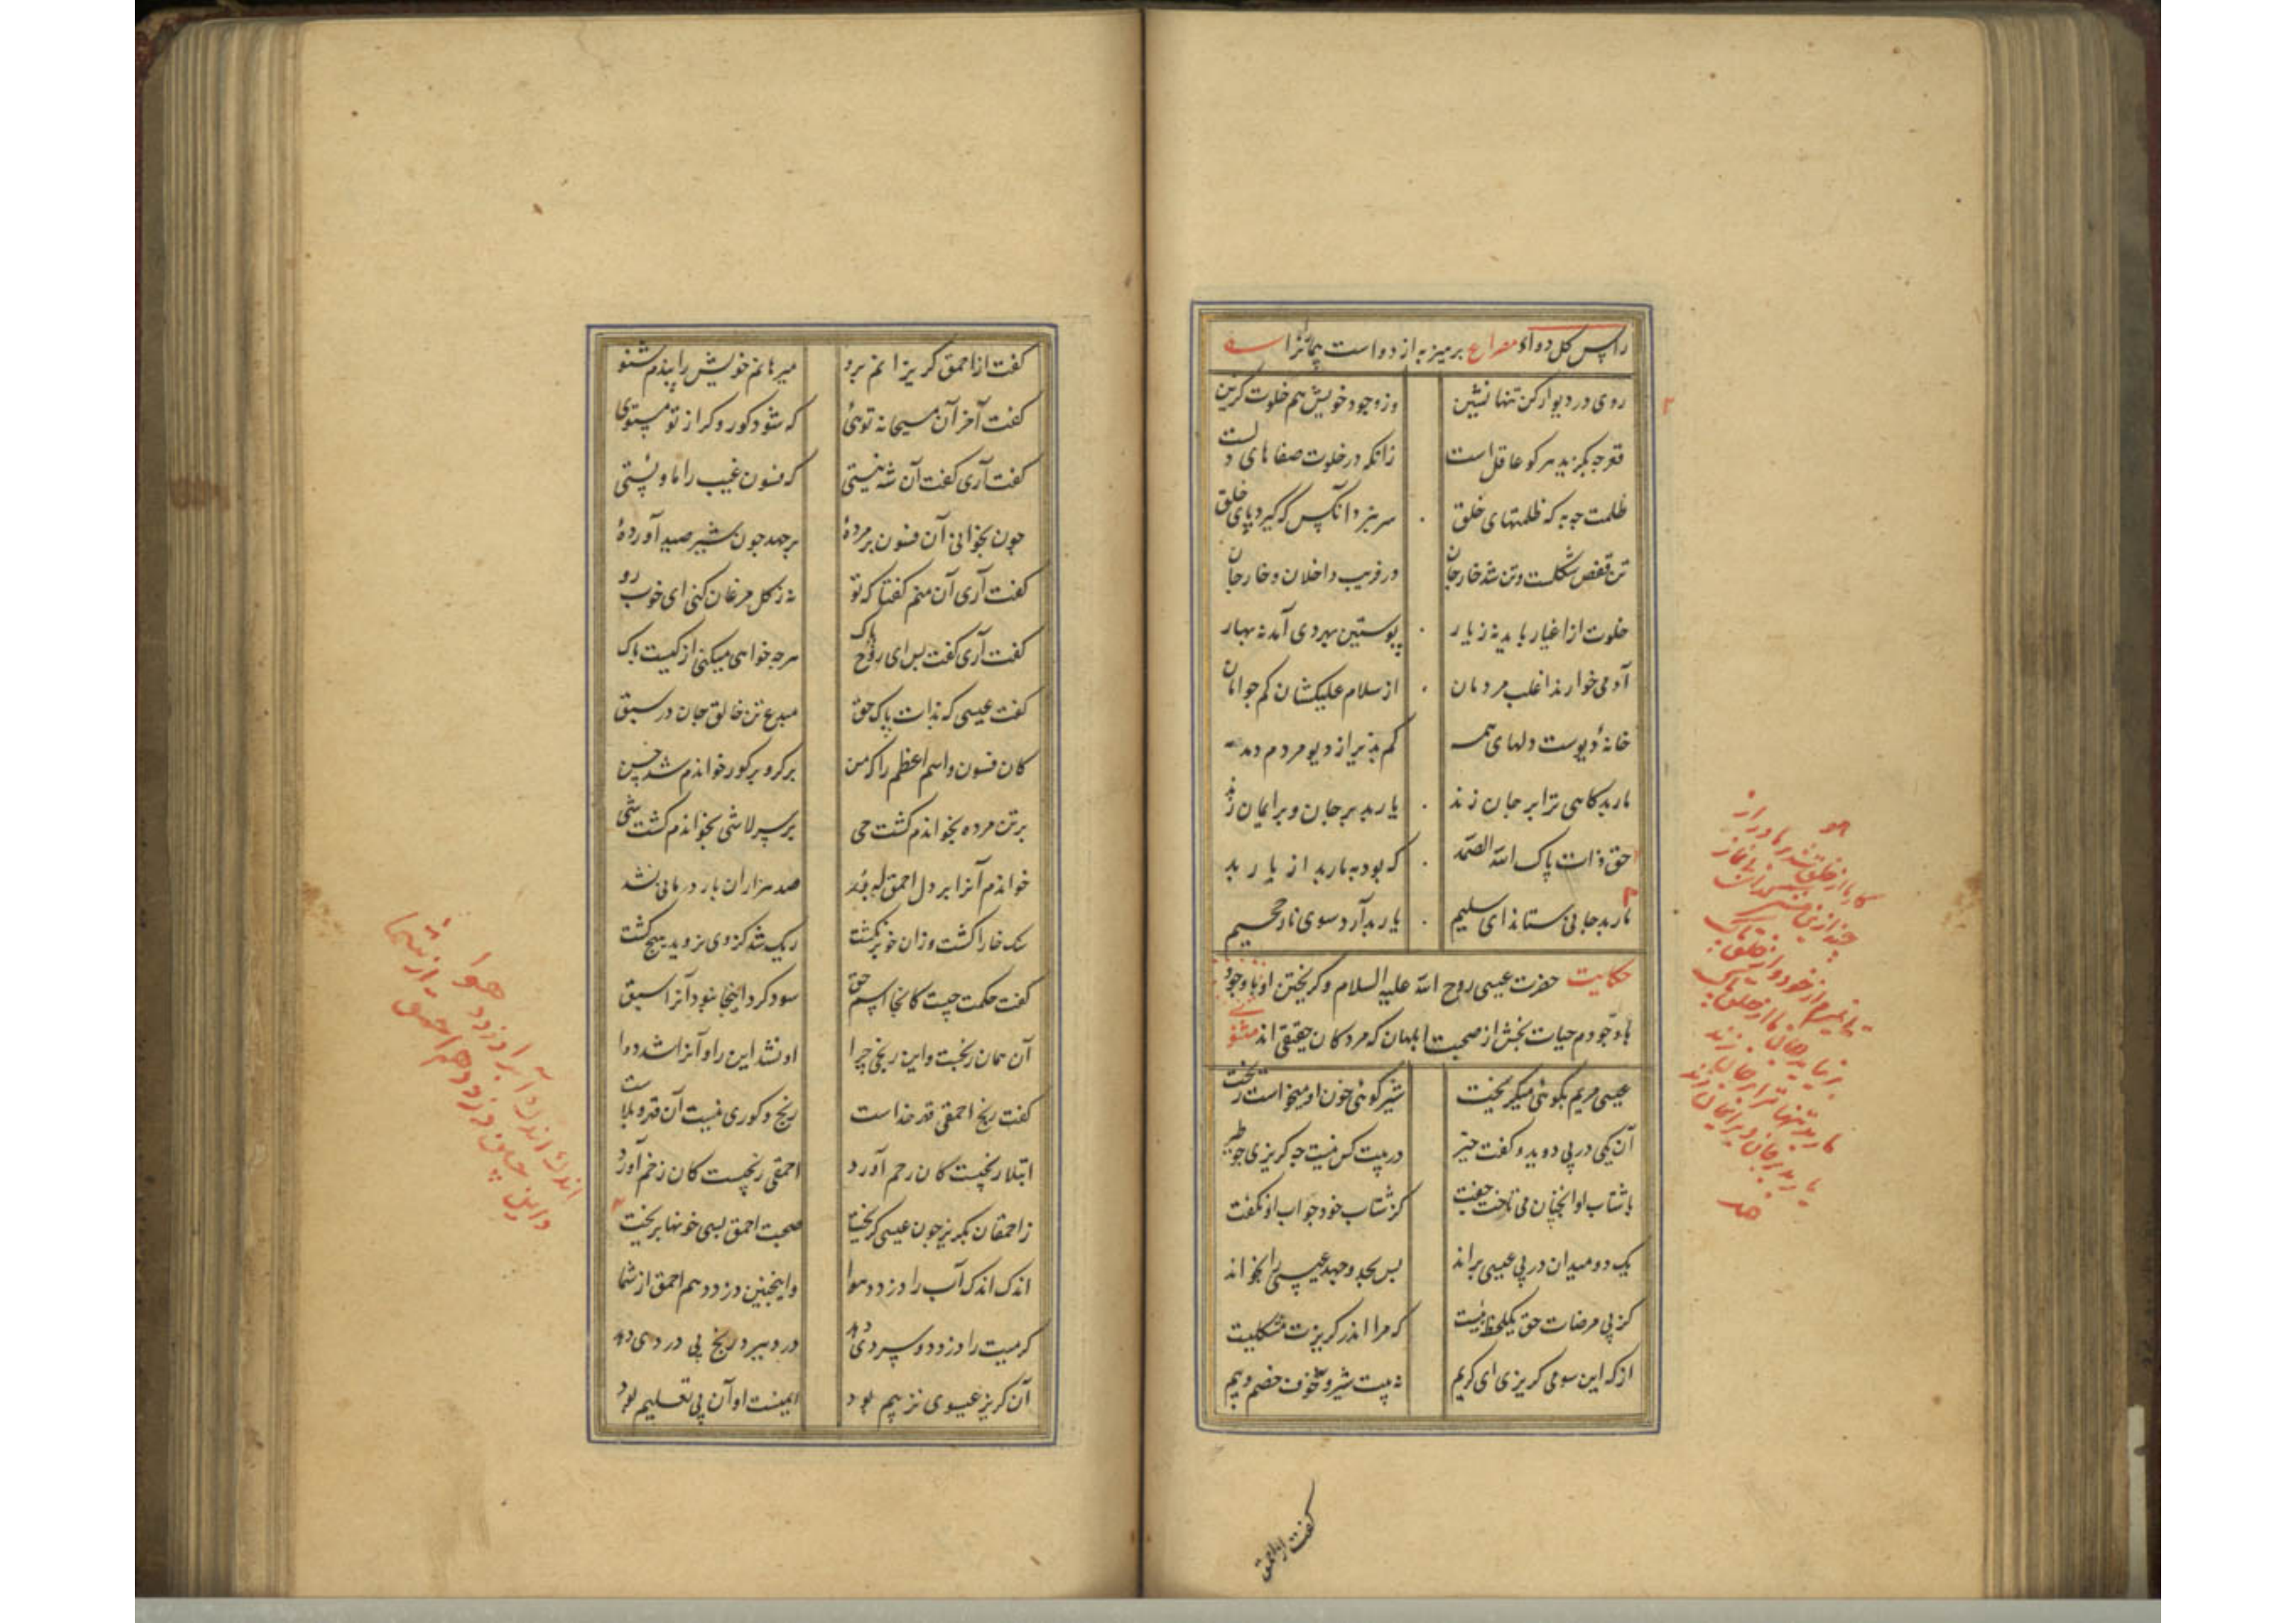 راس کل دواء مصراع پرهیز به از دواست بیمانرا
روی در دیوار کن تنها نشین وز وجود خویش هم خلوت گزین
قعر چه بگزید هر کو عاقل است زانکه در خلوت صفاهای دلست
ظلمت چه به که ظلمتهای خلق سر نبرد آنکس که گیرد پای خلق
تن قفص شکلست و تن شد خار جان در فریب داخلان و خارجان
خلوت از اغیار باید نه ز یار پوستین بهر دی آمد نه بهار
آدمی خوارند اغلب مردمان از سلام علیکشان کم جو امان
خانهٔ دیوست دلهای همه کم پذیر از دیو مردم دمدمه
مار بد کاهی ترا بر جان زند یار بد بر جان و بر ایمان زند
حق ذات پاک الله الصمد که بود به مار بد از یار بد
مار بد جانی ستاند ای سلیم یار بد آرد سوی نار جحیم
حکایت حضرت عیسی روح الله علیه السلام و گریختن او با وجود
با وجود دم حیات بخش از صحبت ابلهان که مردکان حقیقی اند مثنوی
عیسی مریم بکوهی میگریخت شیر گوئی خون او میخواست ریخت
آن یکی در پی دوید و گفت خیر در پیت کس نیست چه گریزی چو طیر
با شتاب او آنچنان می تاخت جفت کز شتاب خود جواب او نگفت
یک دو میدان در پی عیسی براند بس بجد و جهد عیسی را بخواند
کز پی مرضات حق یکلحظه بیست که مرا اندر گریزت مشکلیست
از که این سو می گریزی ای کریم نه پیت شیر و نه خوف خصم و بیم
گفت از احمق
گفت از احمق گریزانم برو میرهانم خویش را بندم مشو
گفت آخر آن مسیحا نه توئی که شود کور و کر از تو مستوی
گفت آری گفت آن شه نیستی که فسون غیب را ماویستی
چون بخوانی آن فسون بر مردهٔ برجهد چون شیر صید آوردهٔ
گفت آری آن منم گفتا که تو نه ز گل مرغان کنی ای خوب رو
گفت آری گفت بس ای روح پاک هرچه خواهی میکنی از کیست باک
گفت عیسی که بذات پاک حق مبدع تن خالق جان در سبق
کان فسون و اسم اعظم را که من بر کر و بر کور خواندم شد حسن
بر تن مرده بخواندم گشت حی بر سر لاشی بخواندم گشت شی
خواندم آنرا بر دل احمق بود صد هزاران بار درمانی نشد
سنک خارا گشت و زان خو برنگشت ریک شد کزوی نروید هیچ گشت
گفت حکمت چیست کانجا اسم حق سود کرد اینجا نبود آنرا سبق
آن همان رنجست و این رنجی چرا او نشد این را و آنرا شد دوا
گفت رنج احمقی قهر خداست رنج و کوری نیست آن قهر و بلاست
ابتلا رنجیست کان رحم آورد احمقی رنجیست کان زخم آورد
ز احمقان بگریز چون عیسی گریخت صحبت احمق بسی خونها بریخت
اندک اندک آب را دزدد هوا و اینچنین دزدد هم احمق از شما
گرمیت را دزدد و سردی دهد درد بیدرد رنج بی دردی دهد
آن گریز عیسوی نز بیم بود ایمنست او آن پی تعلیم بود
اندک اندک آب را دزدد هوا
و این چنین دزدد هم احمق از شما
هو
مار بد تنها ترا بر جان زند
یار بد بر جان و بر ایمان زند